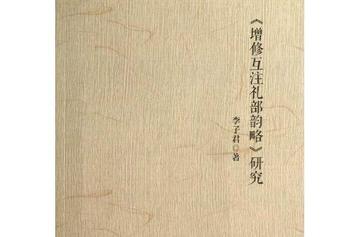 《增修互注礼部韵略》研究
李子君 著